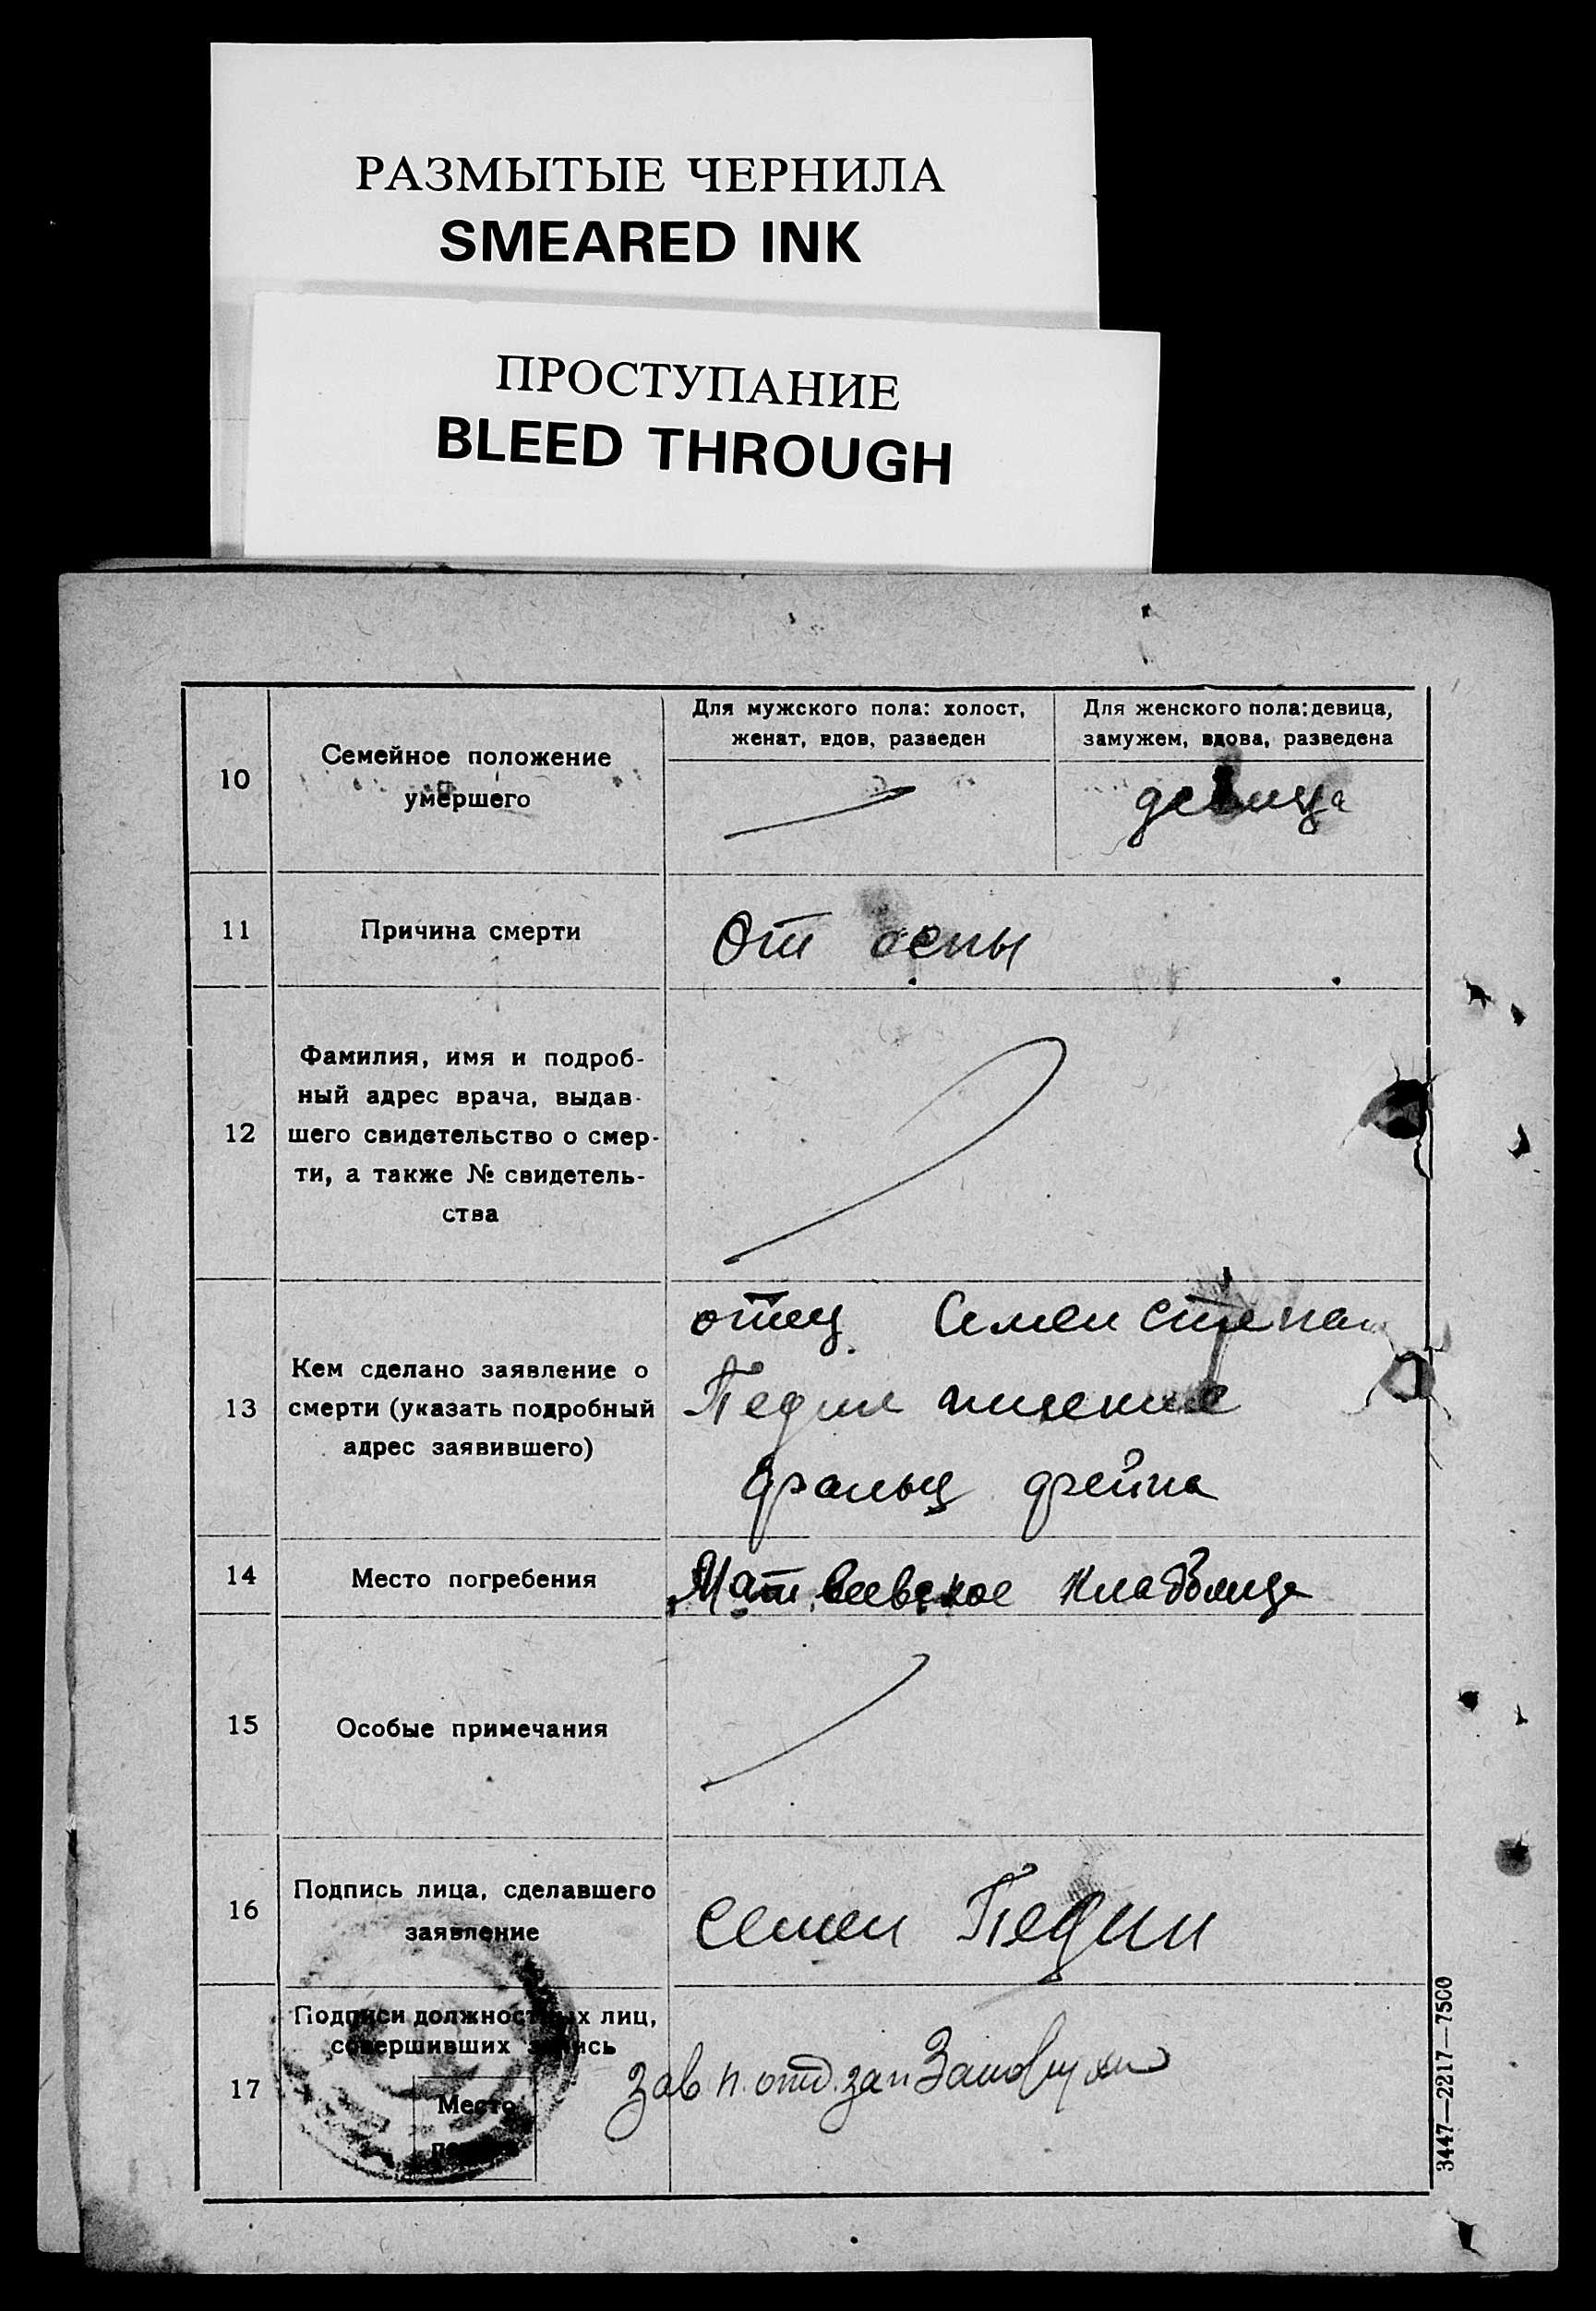 РАЗМЫТЫЕ ЧЕРНИЛА
SMEARED INK
ПРОСТУПАНИЕ
BLEED THROUGH
10
Семейное положение
умершего
Для мужского пола: холост,
женат, вдов, разведен
Для женского пола: девица,
замужем, вдова, разведена
девица
11
Причина смерти
От оспы
12
Фамилия, имя и подроб-
ный адрес врача, выдав-
шего свидетельство о смер-
ти, а также № свидетель-
ства
13
Кем сделано заявление о
смерти (указать подробный
адрес заявившего)
отец Семен Степан
Педин
14
Место погребения
Матвеевское кладбище
15
Особые примечания
16
Подпись лица, сделавшего
заявление
Семен Педин
17
Подписи должностных лиц,
совершивших запись
Место
печати
Зав п. отд. зап
3447—2217—7500